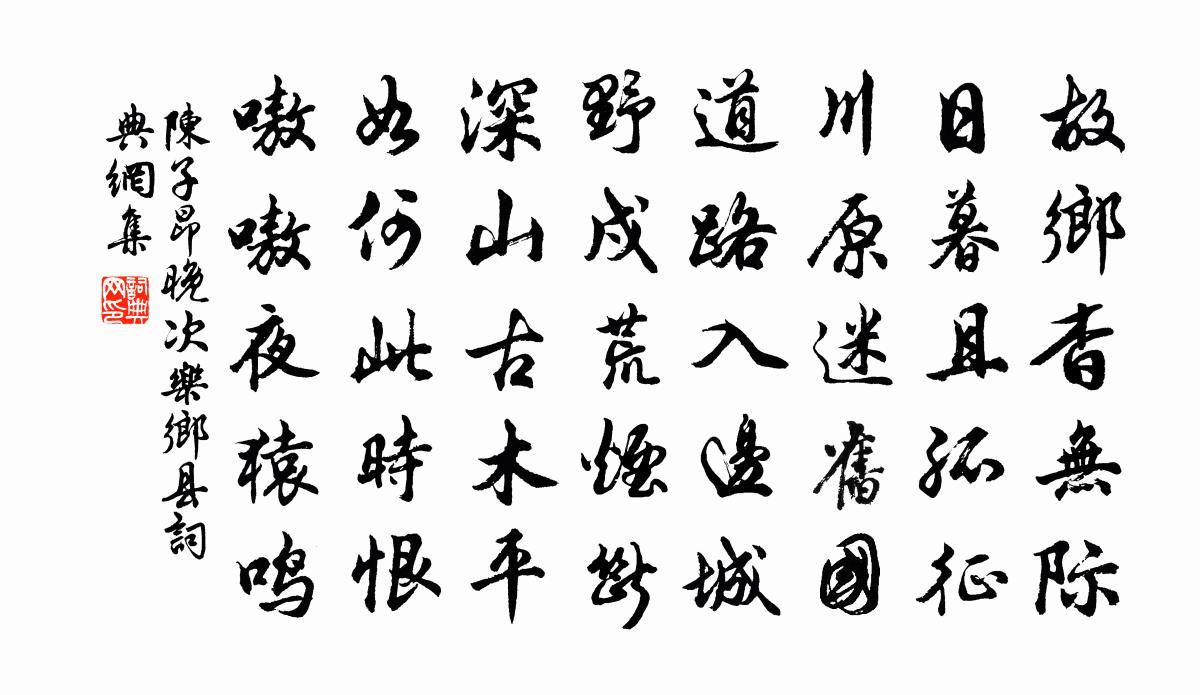 故鄉杳無際
日暮且孤征
川原迷舊國
道路入邊城
野戍荒煙斷
深山古木平
如何此時恨
噭噭夜猿鸣
陳子昂晚次樂鄉县詞
典網集
詞典
网印